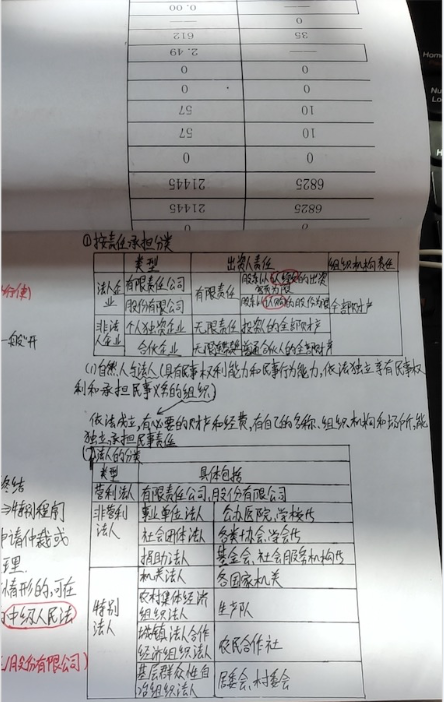 0.00
——
612
35
2.49
——
0
0
0
0
57
10
57
10
0
0
21445
6825
21445
6825
①按责任承担分类
类型 出资人责任 组织机构责任
法人企业 有限责任公司 有限责任 股东以认缴的出资额为限 全部财产
股份有限公司 股东以认购的股份为限
非法人企业 个人独资企业 无限责任 投资人的全部财产
合伙企业 无限 普通合伙人的全部财产
(1)自然人与法人(具有民事权利能力和民事行为能力,依法独立享有民事权
利和承担民事义务的组织。)
依法成立,有必要的财产和经费,有自己的名称、组织机构和场所,能
独立承担民事责任
法人的分类
类型 具体包括
营利法人 有限责任公司,股份有限公司
非营利法人 事业单位法人 公办医院,学校等
社会团体法人 各类协会,学会等
捐助法人 基金会,社会服务机构等
特别法人 机关法人 各国家机关
农村集体经济组织法人 生产队
城镇 法人合作经济组织法人 农民合作社
基层群众性自治组织法人 居委会,村委会
终结
特别程序
申请仲裁或
理
情形的,可在
中级人民法
股份有限公司)